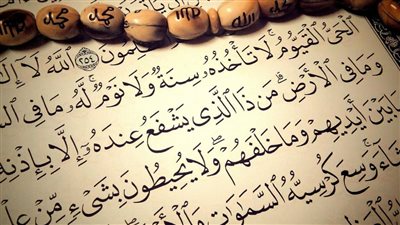 محمد محمد الله
لِمُونَ ٢٥٤ اللَّهُ لَا إِلَٰ
الْحَيُّ الْقَيُّومُ ۚ لَا تَأْخُذُهُ سِنَةٌ وَلَا نَوْمٌ ۚ لَّهُ مَا فِي السَّ
وَمَا فِي الْأَرْضِ ۗ مَن ذَا الَّذِي يَشْفَعُ عِندَهُ إِلَّا بِإِذْنِهِ
مَا بَيْنَ أَيْدِيهِمْ وَمَا خَلْفَهُمْ ۖ وَلَا يُحِيطُونَ بِشَيْءٍ مِّنْ عِلْ
شَاءَ ۚ وَسِعَ كُرْسِيُّهُ السَّمَٰوَٰتِ وَالْأَرْ